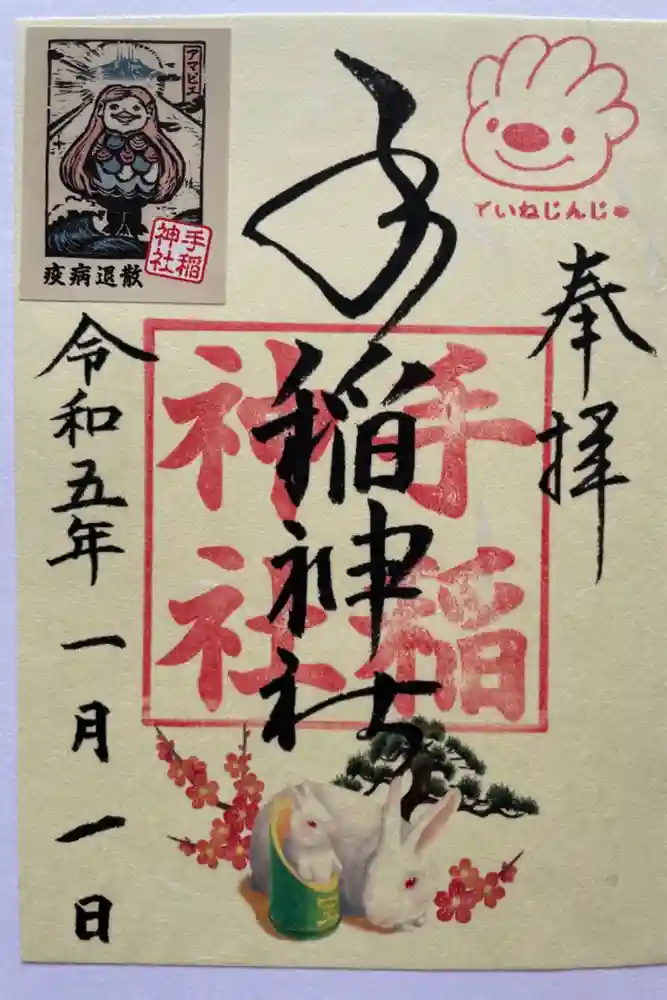 奉拝
ていねじんじゃ
手稲神社
手稲
神社
アマビエ
疫病退散
手稲
神社
令和五年一月一日